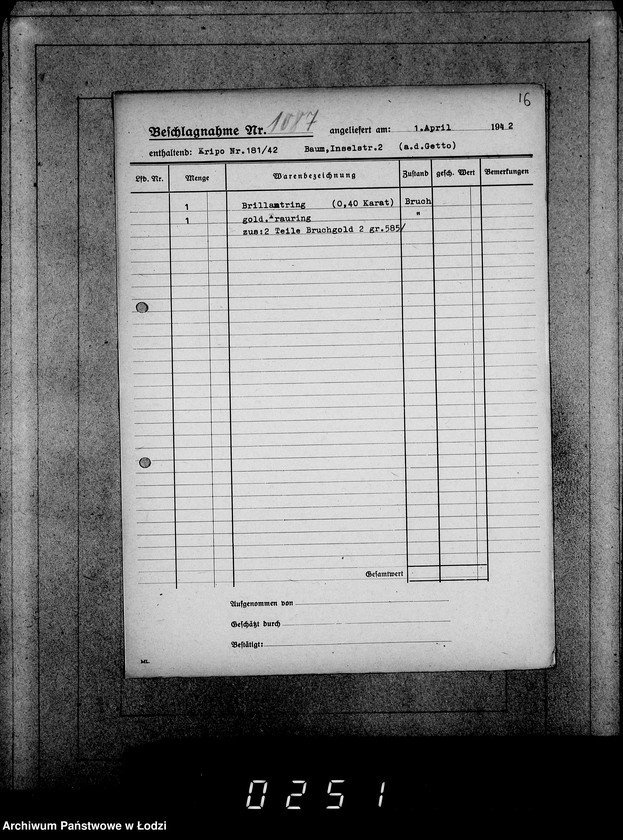 16
Beschlagnahme Nr. 1087 angeliefert am: 1.April 1942
enthaltend: Kripo Nr.181/42 Baum,Inselstr.2 (a.d.Getto)
Lfd. Nr. Menge Warenbezeichnung Zustand gesch. Wert Bemerkungen
1 Brillantring (0,40 Karat) Bruch
1 gold. Trauring "
zus:2 Teile Bruchgold 2 gr.585/
Gesamtwert
Aufgenommen von
Geschäßt durch
Bestätigt:
0251
Archiwum Państwowe w Łodzi